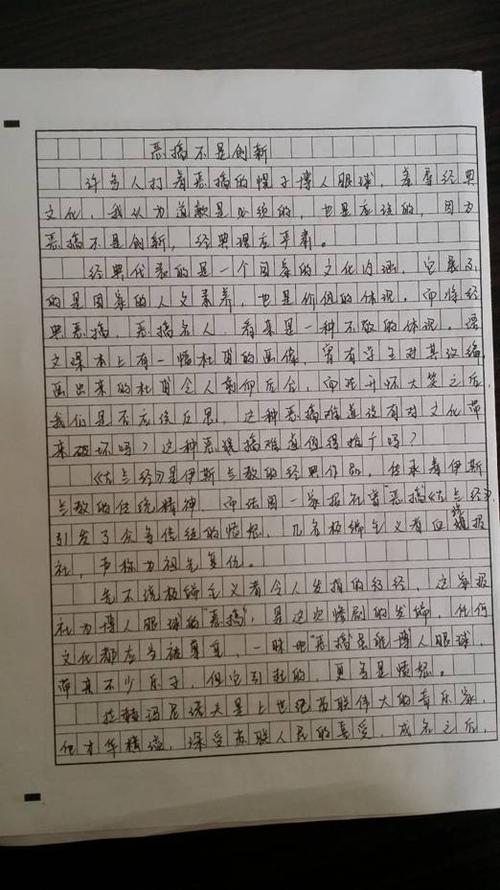 恶搞不是创新
许多人打着恶搞的幌子博人眼球，羞辱经典
文化，我认为道歉是必须的，也是应该的，因为
恶搞不是创新，经典理应严肃。
经典代表的是一个国家的文化内涵，它展示
的是国家的人文素养，也是价值的体现。而将经
典恶搞，恶搞名人，看来是一种不敬的体现。语
文课本上有一幅杜甫的画像，曾有学生对其改编
画出来的杜甫令人前仰后合，而在开怀大笑之后，
我们是否应该反思，这种恶搞难道没有对文化带
来破坏吗？这种恶搞难道值得推广吗？
《古兰经》是伊斯兰教的经典作品，传承着伊斯
兰教的传统精神，而法国一家报社曾"恶搞"《古兰经》，
引发了众多信徒的愤怒，几名极端主义者血洗报
社，声称为祖先复仇。
先不说极端主义者令人发指的行径，这家报
社为博人眼球的"恶搞"，是这次惨剧的发端，任何
文化都应当被尊重，一味地"恶搞"虽能博人眼球，
带来不少乐子，但它引起的，更多是愤怒。
拉赫玛尼诺夫是上世纪苏联伟大的音乐家，
他才华横溢，深受苏联人民的喜爱，成名之后，